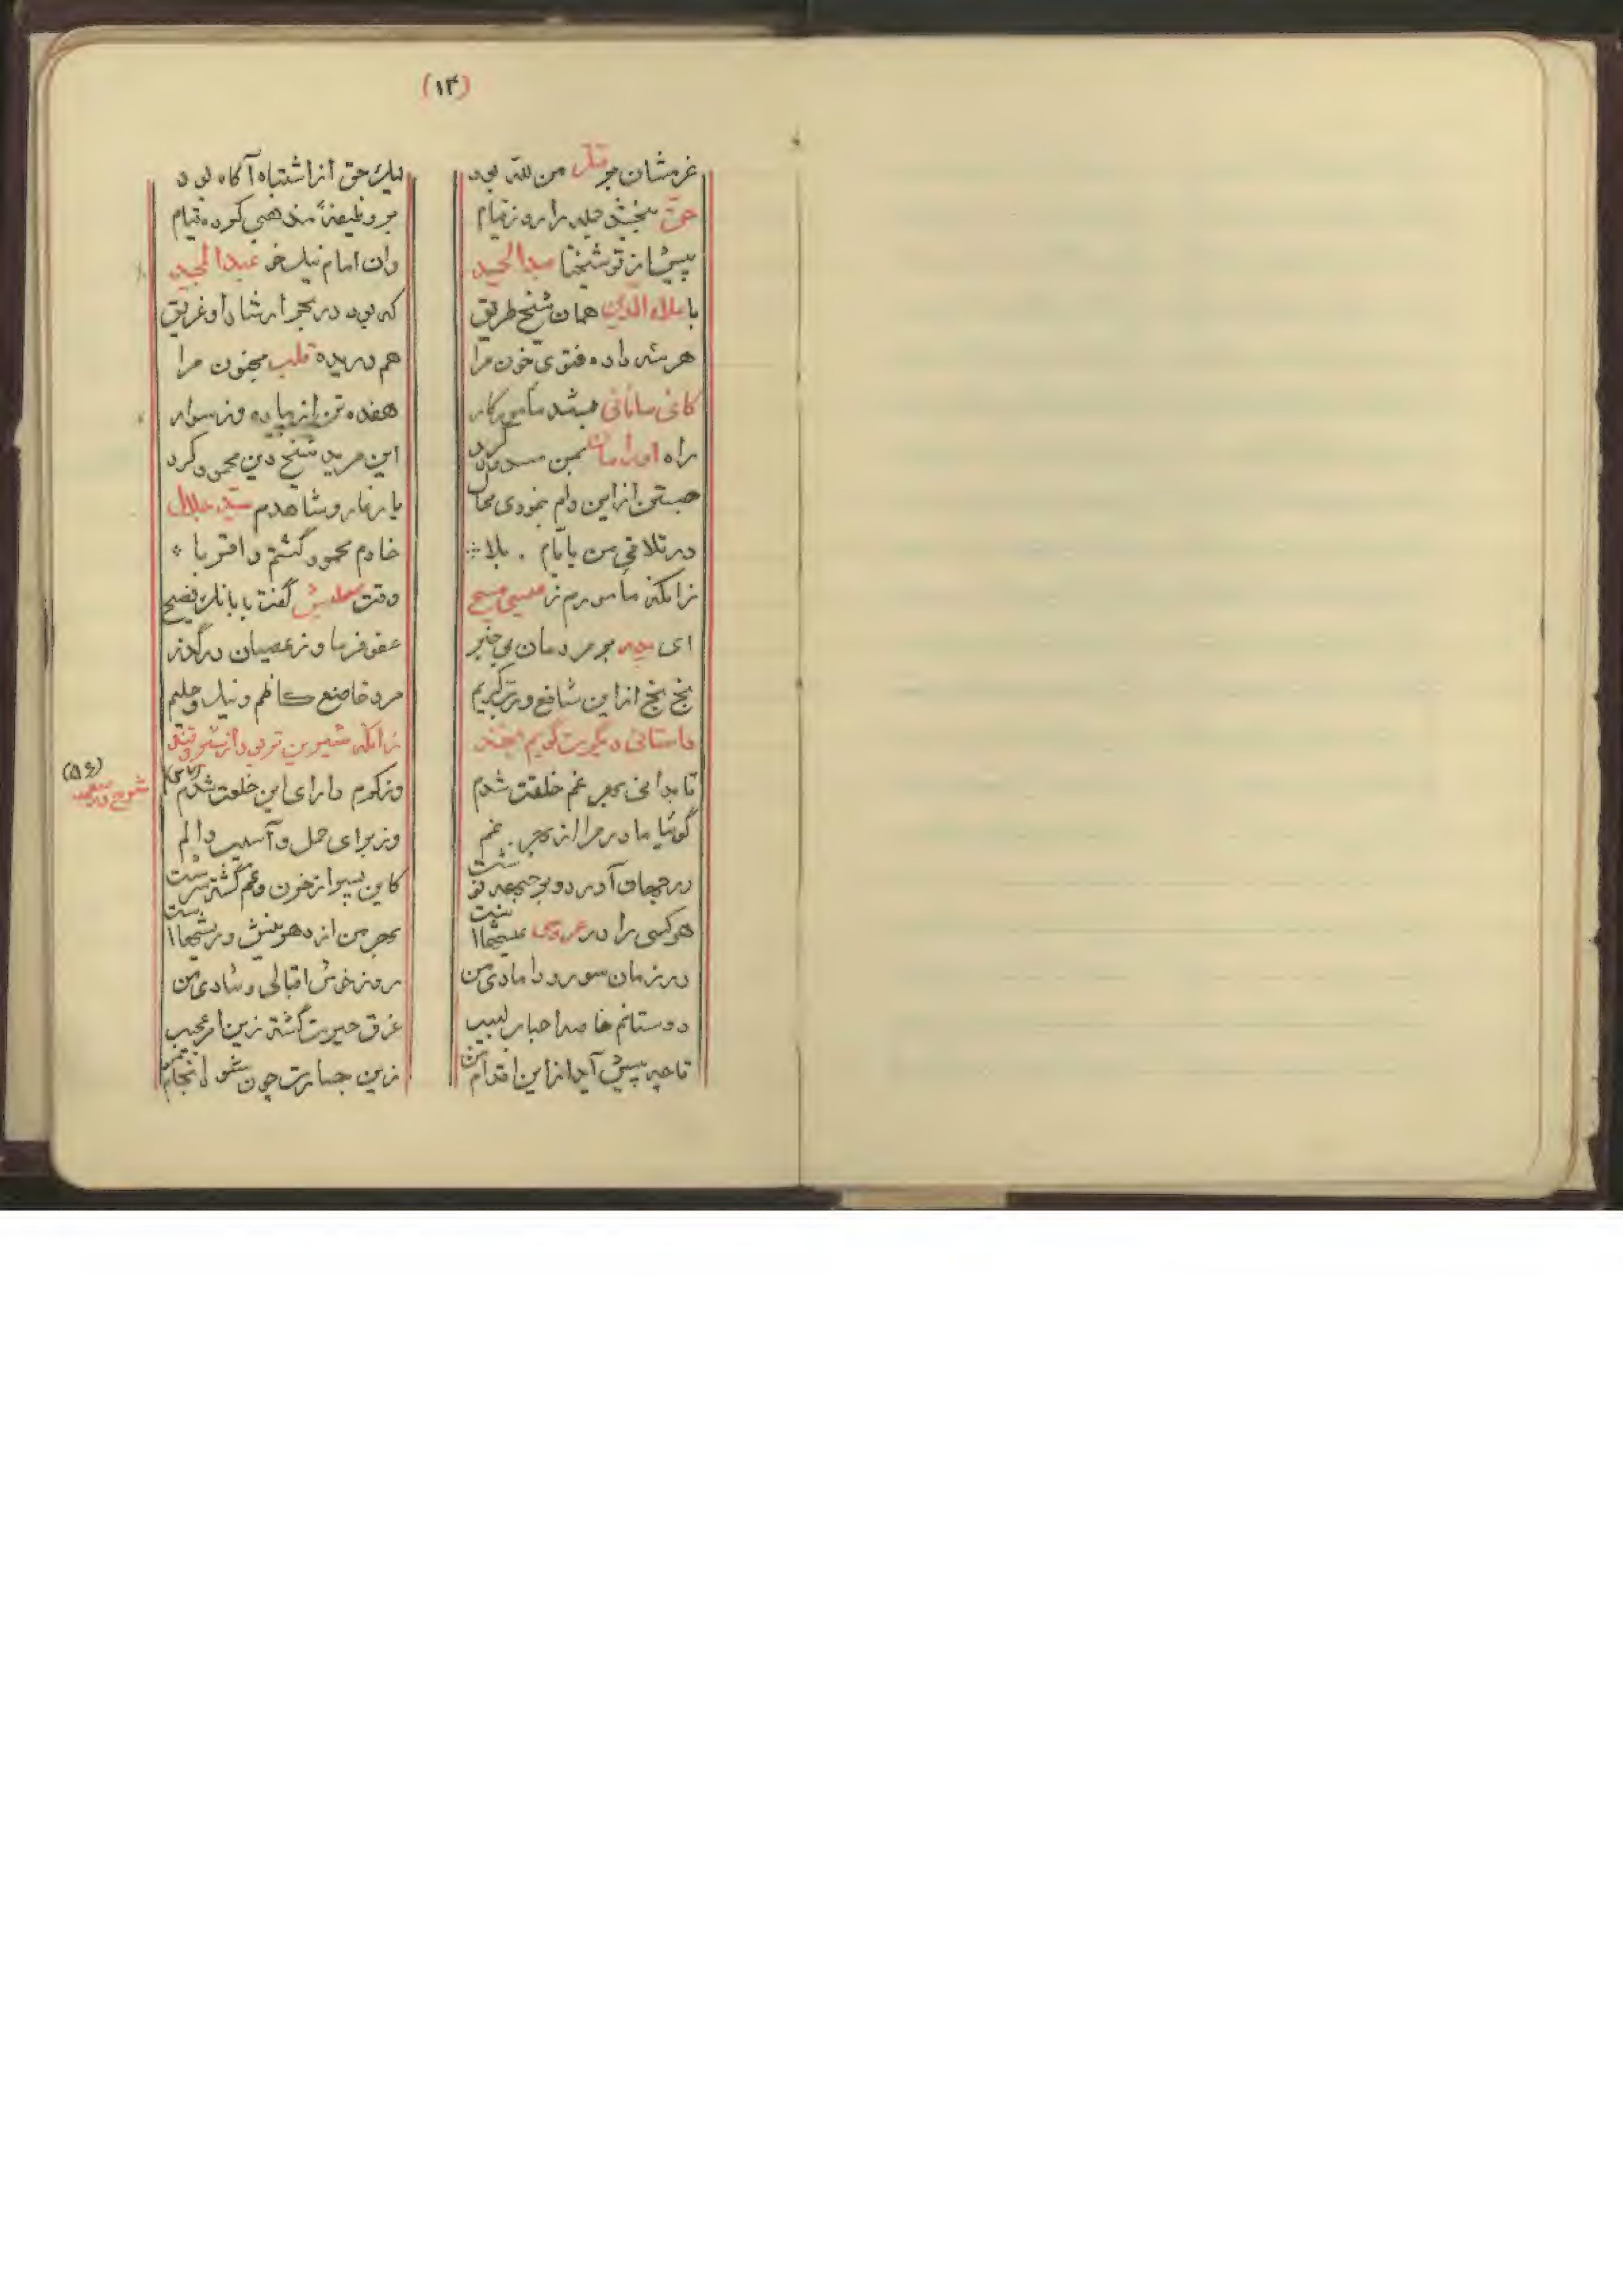 (۱۳)
عزمشان بر قتل من لله بود لیک حق از اشتباه آگاه بود
حق ببخشد جمله را روز قیام بر وظیفهٔ مذهبی کرده قیام
پیش از تو شیخنا عبدالحمید وان امام نیک خو عبدالمجید
با علاءالدین همان شیخ طریق که بود در بحر ارشاد او غریق
هر سه داده فتوی خون مرا هم دریده قلب محزون مرا
کانی سانانی مأمور کار هفده تن از پیاده وز سوار
راه اورامان بمن مسدود کرد این مرید شیخ دین محمود کرد
جستن از این دام بنمودی محال یار غار و شاهدم سید جلال
در تلاقی من با یام بلا خادم محمود گشتم و اقربا
زانکه مأمورم ز عیسی مسیح وقت گفت با بانک فصیح
ای پدر بر مردمان بی خبر عفو فرما وز عصیان درگذر
بخ بخ از این شافع ورب کریم مرد قانع کاظم و نیک و حلیم
داستانی دیگرت گویم بخند زانکه شیرین تر بود از شهد و قند
تا بدانی بهر غم خلقت شدم وز کرم دارای این خلعت شدم
(۵۶)
گوئیا مادر مرا از بهر غم وز برای حمل و آسیب والم
در جهان آورد و بر جبهه نوشت کاین پسر از خون وغم گشته سرشت
هر کسی را در عروسی عیشها است بهر من از دهر نیش و ریشها است
در زمان سور و دامادی من روز خوش اقبالی و شادی من
دوستانم خاصه احباب لبیب غرق حیرت گشته زین امر عجیب
تا چه پیش آید از این اقدام من زین جسارت چون شود انجام من